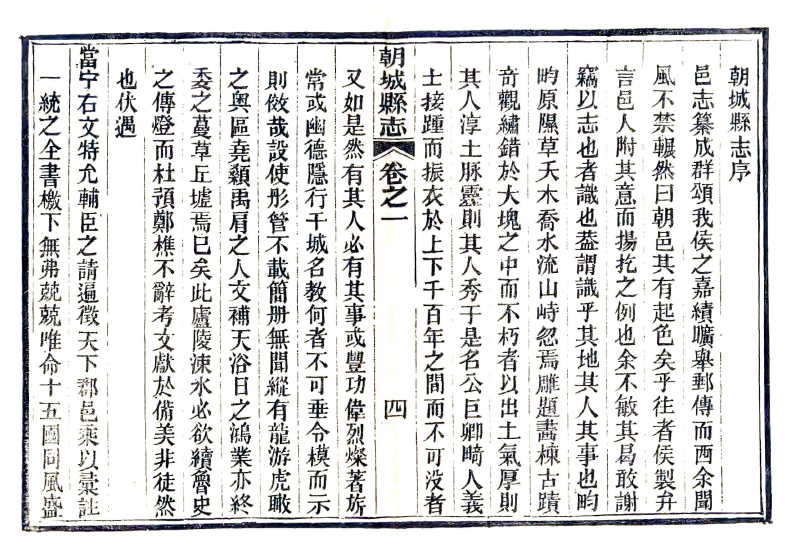 朝城縣志序
邑志纂成群頌我侯之嘉績曠舉郵傳而西余聞
風不禁囅然曰朝邑其有起色矣乎往者侯製弁
言邑人附其意而揚扢之例也余不敏其曷敢謝
竊以志也者識也蓋謂識乎其地其人其事也畇
畇原隰草夭木喬水流山峙忽焉雕題畫棟古蹟
奇觀繡錯於大塊之中而不朽者以出土氣厚則
其人淳土脉靈則其人秀于是名公巨卿畸人義
士接踵而振衣於上下千百年之間而不可没者
朝城縣志 卷之一 四
又如是然有其人必有其事或豐功偉烈燦著旂
常或幽德隱行干城名教何者不可垂令模而示
則傚哉設使彤管不載簡册無聞縱有龍游虎瞰
之輿區堯顙禹肩之人文補天浴日之鴻業亦終
委之蔓草丘墟焉已矣此廬陵涑水必欲續魯史
之傳燈而杜預鄭樵不辭考文獻於備美非徒然
也伏遇
當宁右文特允輔臣之請遍徵天下郡邑乘以彙註
一統之全書檄下無弗兢兢唯命十五國同風盛